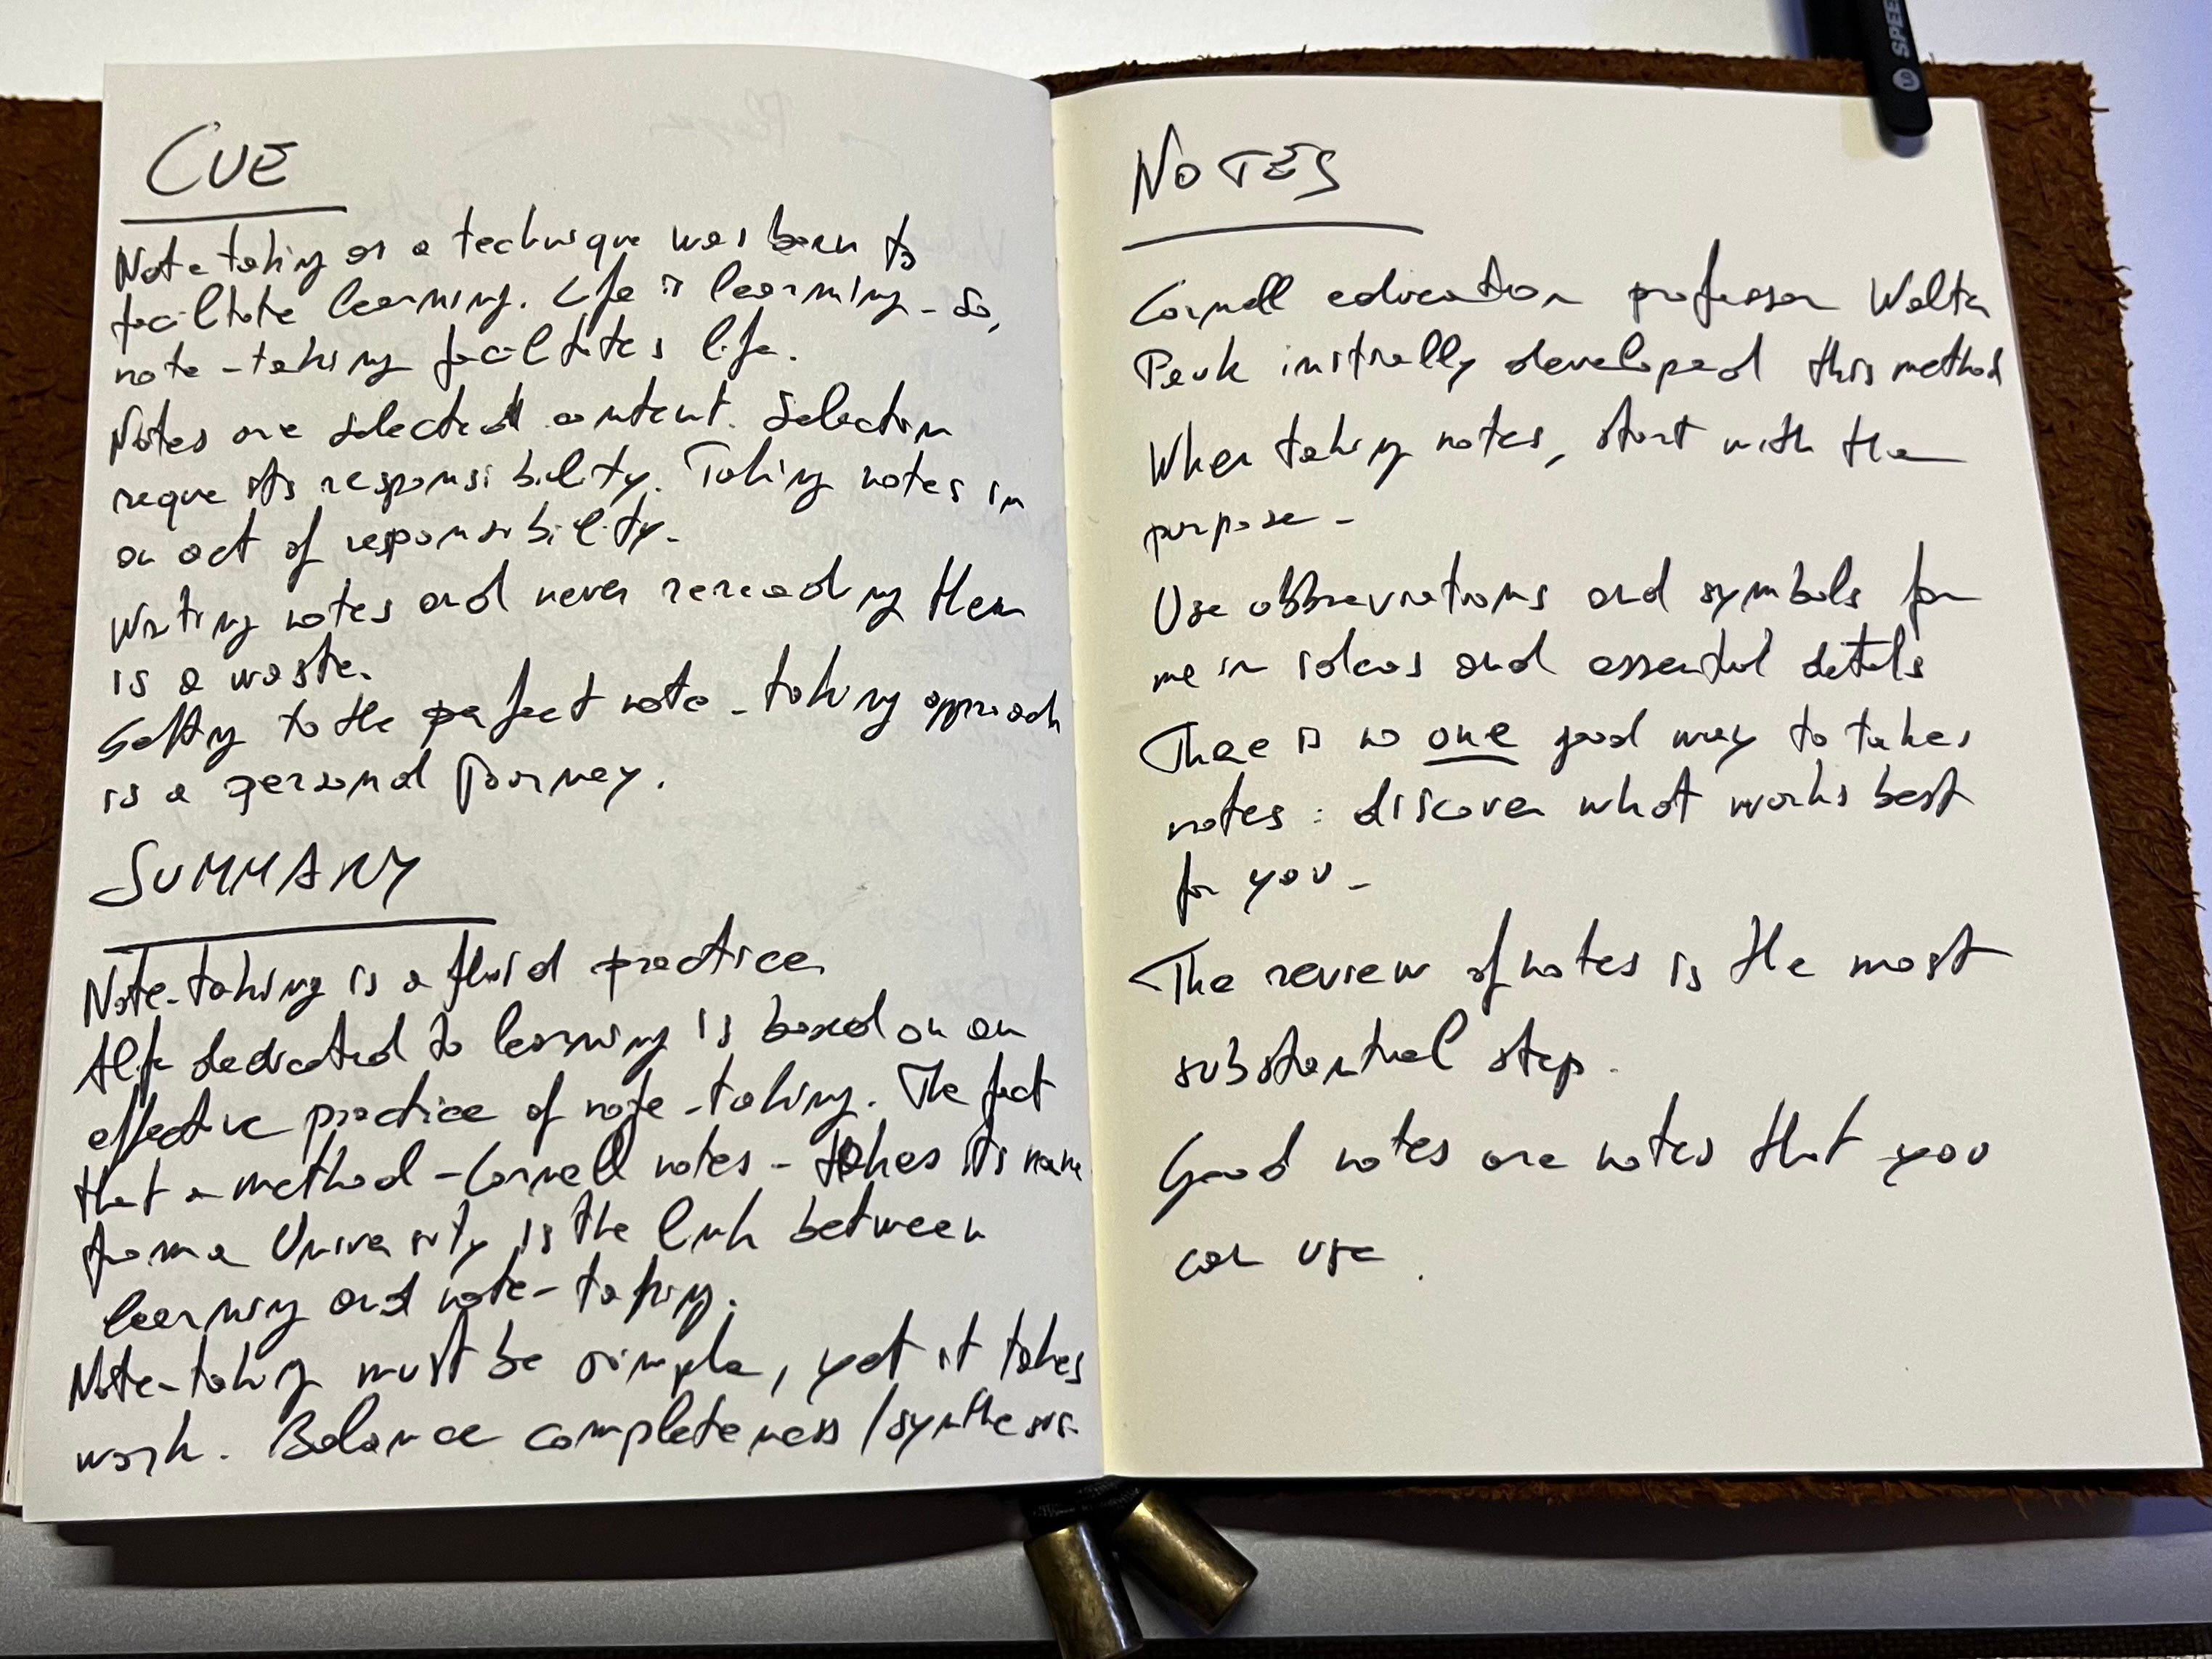 CUE
Note-taking as a technique was born to
facilitate learning. Life is learning. So,
note-taking facilitates life.
Notes are selected content. Selection
requests responsibility. Taking notes is
an act of responsibility.
Writing notes and never rereading them
is a waste.
Getting to the perfect note-taking approach
is a personal journey.
SUMMARY
Note-taking is a fluid practice
A life dedicated to learning is based on an
effective practice of note-taking. The fact
that a method - Cornell notes - takes its name
from a University is the link between
learning and note-taking.
Note-taking must be simple, yet it takes
work. Balance completeness/synthesis.
NOTES
Cornell education professor Walter
Pauk initially developed this method
When taking notes, start with the
purpose.
Use abbreviations and symbols for
main ideas and essential details
There is no one good way to takes
notes: discover what works best
for you.
The review of notes is the most
substantial step.
Good notes are notes that you
can use.
SPEE